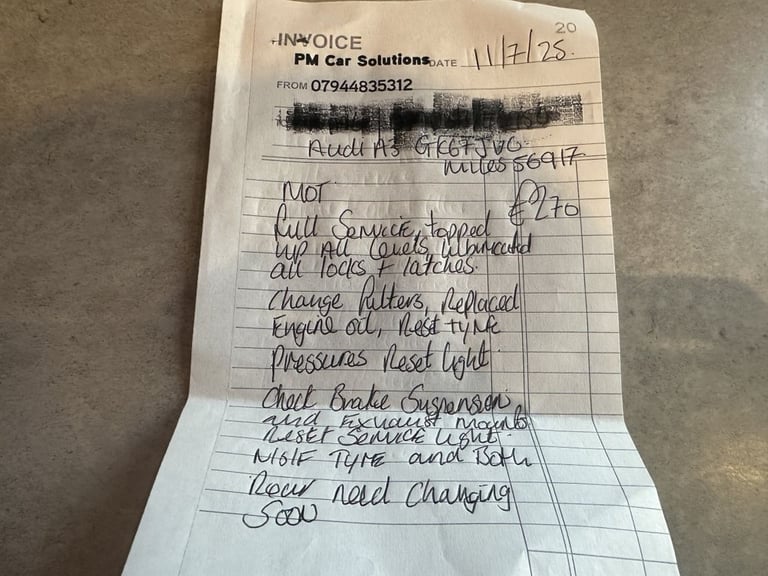 20
INVOICE
PM Car Solutions DATE 11/7/25.
FROM 07944835312
Audi A3 GK67JVG
Miles 56917
MOT £270
full Service, topped
up All levels, lubricated
all locks + latches.
Change filters, Replaced
Engine oil, Rest tyre
Pressures Reset light
Check Brake Suspension
and Exhaust mounts
Reset Service light.
N/S/F Tyre and Both
Rear need Changing
Soon